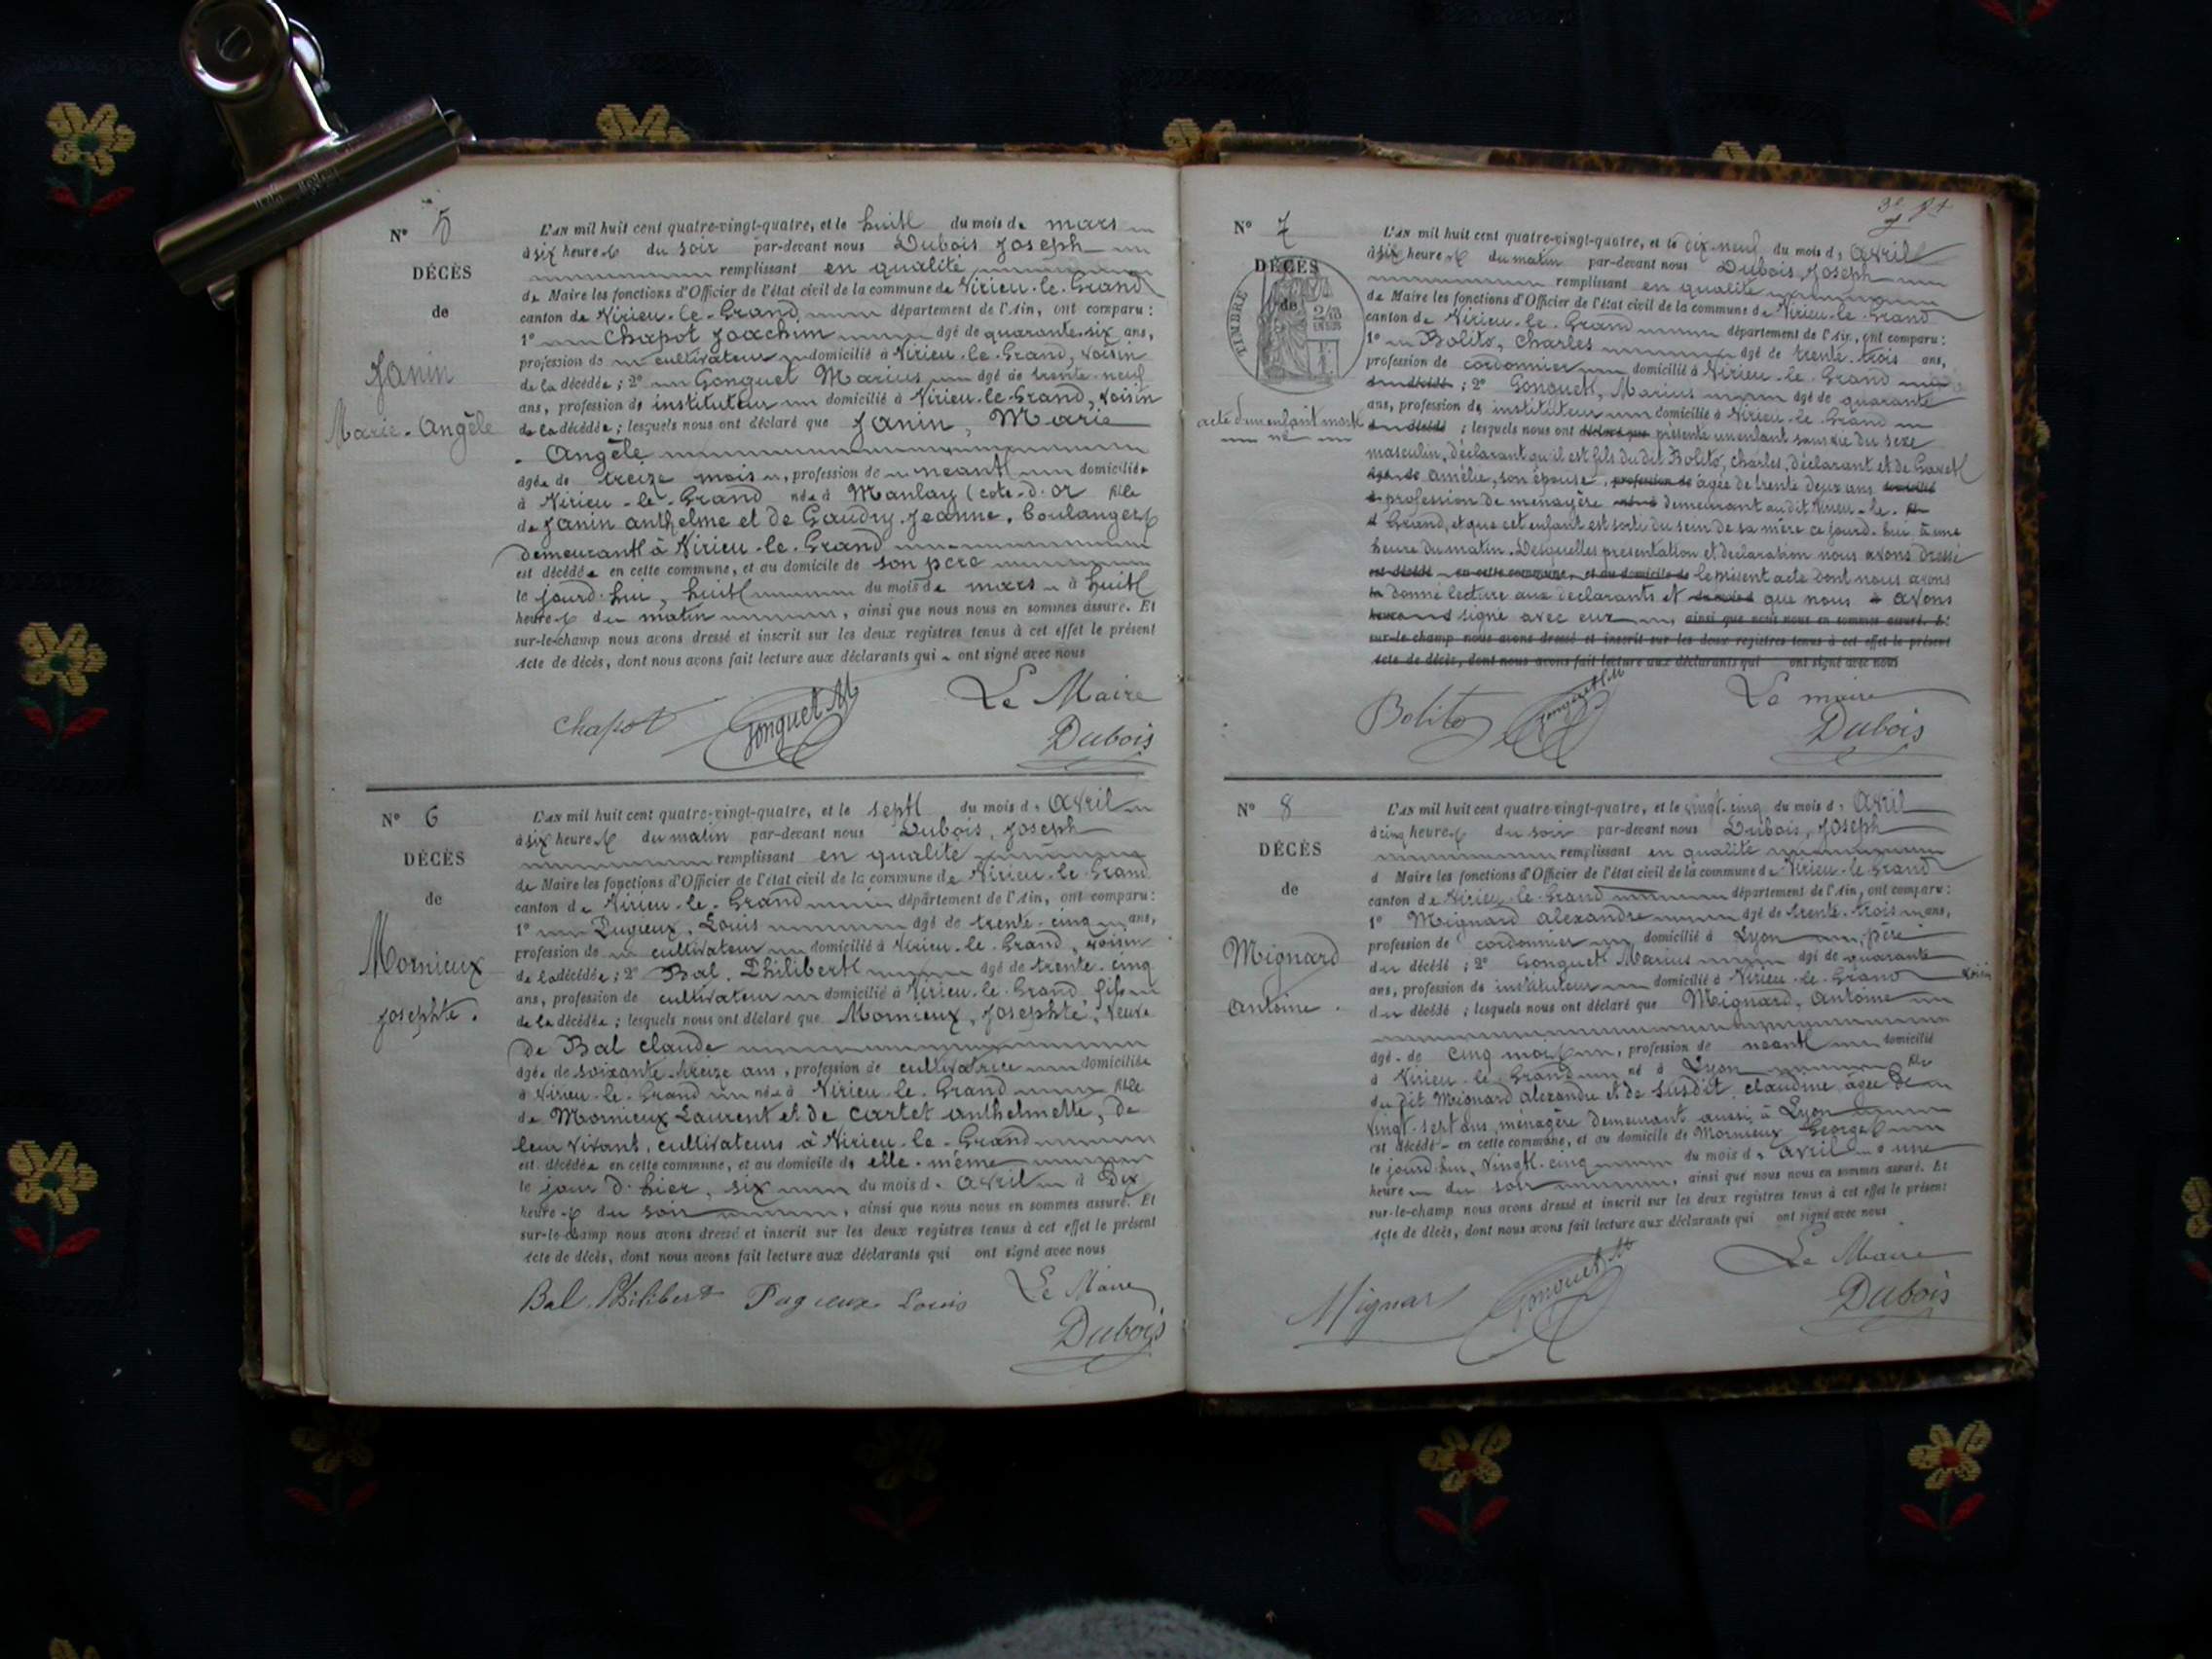 N° 5
DÉCÈS
de
Janin
Marie-Angèle
L'AN mil huit cent quatre-vingt-quatre, et le huit du mois de mars
à six heures du soir par-devant nous Dubois Joseph
remplissant en qualité
de Maire les fonctions d'Officier de l'état civil de la commune de Virieu-le-Grand
canton de Virieu-le-Grand département de l'Ain, ont comparu :
1° Chapot Joachim âgé de quarante-six ans,
profession de cultivateur domicilié à Virieu-le-Grand, voisin
de la décédée ; 2° Gonguet Marius âgé de trente-neuf
ans, profession de instituteur domicilié à Virieu-le-Grand, voisin
de la décédée ; lesquels nous ont déclaré que Janin, Marie
- Angèle
âgée de treize mois, profession de néant domiciliée
à Virieu-le-Grand née à Manlay (cote-d'or fille
de Janin anthelme et de Gaudry Jeanne, boulangers
demeurant à Virieu-le-Grand
est décédée en cette commune, et au domicile de son père
le jourd'hui, huit du mois de mars à huit
heures du matin, ainsi que nous nous en sommes assuré. Et
sur-le-champ nous avons dressé et inscrit sur les deux registres tenus à cet effet le présent
Acte de décès, dont nous avons fait lecture aux déclarants qui ont signé avec nous
Chapot Gonguet M Le Maire
Dubois
N° 6
DÉCÈS
de
Mornieux
Josephte.
L'AN mil huit cent quatre-vingt-quatre, et le sept du mois d'Avril
à six heures du matin par-devant nous Dubois, Joseph
remplissant en qualité
de Maire les fonctions d'Officier de l'état civil de la commune de Virieu-le-Grand
canton de Virieu-le-Grand département de l'Ain, ont comparu :
1° Pugieux, Louis âgé de trente-cinq ans,
profession de cultivateur domicilié à Virieu-le-Grand, voisin
de la décédée ; 2° Bal, Philibert âgé de trente-cinq
ans, profession de cultivateur domicilié à Virieu-le-Grand fils
de la décédée ; lesquels nous ont déclaré que Mornieux, Josephte, veuve
de Bal claude
âgée de soixante-treize ans, profession de cultivatrice domiciliée
à Virieu-le-Grand née à Virieu-le-Grand fille
de Mornieux Laurent et de Cartet anthelmette, de
leur vivant, cultivateurs à Virieu-le-Grand
est décédée en cette commune, et au domicile de elle-même
le jour d'hier, six du mois d'Avril à Dix
heures du soir, ainsi que nous nous en sommes assuré. Et
sur-le-champ nous avons dressé et inscrit sur les deux registres tenus à cet effet le présent
Acte de décès, dont nous avons fait lecture aux déclarants qui ont signé avec nous
Bal Philibert Pugieux Louis Le Maire
Dubois
N° 7
DÉCÈS
de
TIMBRE
acte d'un enfant mort
né
L'AN mil huit cent quatre-vingt-quatre, et le dix-neuf du mois d'Avril
à six heures du matin par-devant nous Dubois, Joseph
remplissant en qualité
de Maire les fonctions d'Officier de l'état civil de la commune de Virieu-le-Grand
canton de Virieu-le-Grand département de l'Ain, ont comparu :
1° Bolito, Charles âgé de trente-trois ans,
profession de cordonnier domicilié à Virieu-le-Grand
du décédé ; 2° Gonguet, Marius âgé de quarante
ans, profession de instituteur domicilié à Virieu-le-Grand
du décédé ; lesquels nous ont déclaré que présenté un enfant sans vie du sexe
masculin, déclarant qu'il est fils du dit Bolito, Charles, déclarant et de Gavet
âgé de amélie, son épouse, profession de agée de trente deux ans domicilié
à profession de ménagère né à demeurant audit Virieu-le-
Grand, et que cet enfant est sorti du sein de sa mère ce jourd'hui, à une
heure du matin. Desquelles présentation et déclaration nous avons dressé
est décédé en cette commune, et au domicile de le présent acte dont nous avons
le donné lecture aux déclarants et du mois d que nous à avons
heure signé avec eux, ainsi que nous nous en sommes assuré. Et
sur-le-champ nous avons dressé et inscrit sur les deux registres tenus à cet effet le présent
Acte de décès, dont nous avons fait lecture aux déclarants qui ont signé avec nous
Bolito Gonguet M Le maire
Dubois
N° 8
DÉCÈS
de
Mignard
Antoine.
L'AN mil huit cent quatre-vingt-quatre, et le vingt-cinq du mois d'Avril
à cinq heures du soir par-devant nous Dubois, Joseph
remplissant en qualité
d Maire les fonctions d'Officier de l'état civil de la commune de Virieu-le-Grand
canton de Virieu-le-Grand département de l'Ain, ont comparu :
1° Mignard alexandre âgé de trente-trois ans,
profession de cordonnier domicilié à Lyon, père
du décédé ; 2° Gonguet Marius âgé de quarante
ans, profession de instituteur domicilié à Virieu-le-Grand voisin
du décédé ; lesquels nous ont déclaré que Mignard, Antoine
âgé de cinq mois, profession de néant domicilié
à Virieu-le-Grand né à Lyon fils
du dit Mignard alexandre et de Susdit, claudine, âgée de
vingt-sept ans, ménagère demeurant aussi à Lyon
est décédé en cette commune, et au domicile de Mornieux George
le jourd'hui, vingt-cinq du mois d'avril à une
heure du soir, ainsi que nous nous en sommes assuré. Et
sur-le-champ nous avons dressé et inscrit sur les deux registres tenus à cet effet le présent
Acte de décès, dont nous avons fait lecture aux déclarants qui ont signé avec nous
Mignar Gonguet M Le Maire
Dubois